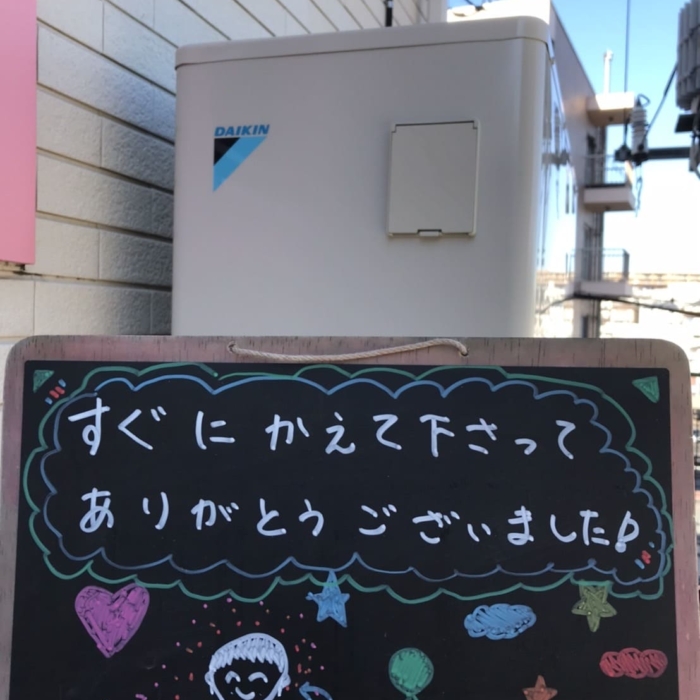 DAIKIN
すぐに かえて下さって
ありがとうございました!